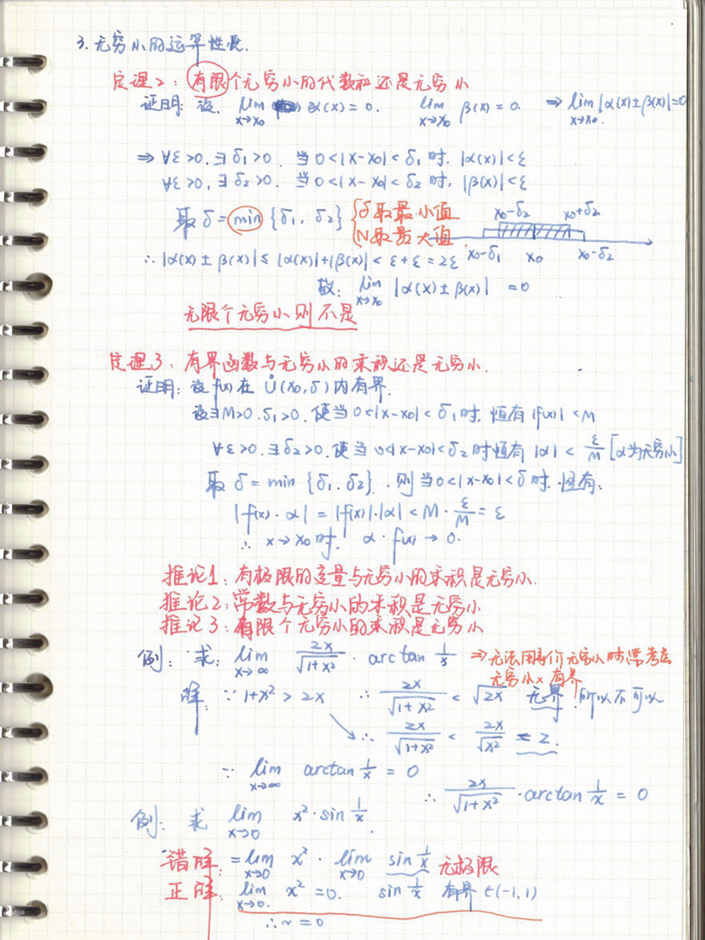 3. 无穷小的运算性质.
定理2: 有限个无穷小的代数和还是无穷小
证明: 设 lim x→x0 α(x)=0. lim x→x0 β(x)=0. ⇒ lim x→x0 |α(x)±β(x)|=0
⇒ ∀ε>0, ∃δ1>0. 当 0<|x-x0|<δ1 时. |α(x)|<ε
∀ε>0, ∃δ2>0. 当 0<|x-x0|<δ2 时, |β(x)|<ε
取 δ=min{δ1, δ2} { δ取最小值 x0-δ2 x0+δ2
N取最大值. x0-δ1 x0 x0-δ2
∴ |α(x)±β(x)|≤|α(x)|+|β(x)|<ε+ε=2ε
故: lim x→x0 |α(x)±β(x)| =0
无限个无穷小则不是
定理3: 有界函数与无穷小的乘积还是无穷小.
证明: 设 f(x) 在 Ů(x0,δ) 内有界.
设∃M>0. δ1>0. 使当 0<|x-x0|<δ1时. 恒有 |f(x)|<M
∀ε>0. ∃δ2>0. 使当 0<|x-x0|<δ2 时恒有 |α|< ε/M [α为无穷小]
取 δ=min{δ1.δ2}. 则当 0<|x-x0|<δ 时. 恒有.
|f(x)·α|=|f(x)|·|α|<M·ε/M=ε
∴ x→x0 时, α·f(x)→0.
推论1: 有极限的变量与无穷小的乘积是无穷小.
推论2: 常数与无穷小的乘积是无穷小
推论3: 有限个无穷小的乘积是无穷小
例: 求: lim x→∞ 2x/√(1+x²) · arctan 1/x ⇒ 无法用等价无穷小时常考虑
无穷小×有界
解: ∵ 1+x²>2x ∴ 2x/√(1+x²) < √2x 无界. 所以不可以
∴ 2x/√(1+x²) < 2x/√x² = 2.
∵ lim x→∞ arctan 1/x = 0
∴ 2x/√(1+x²) · arctan 1/x = 0
例: 求 lim x→0 x²·sin 1/x.
错解: = lim x→0 x² · lim x→0 sin 1/x 无极限
正解: lim x→0. x²=0. sin 1/x 有界 ∈(-1,1)
∴ ~ = 0